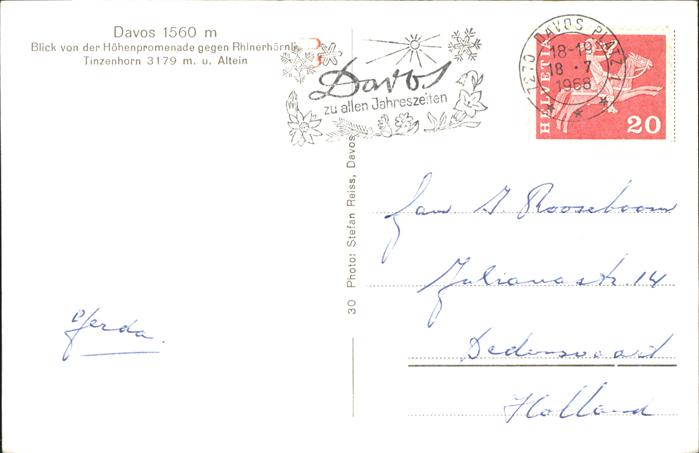 Davos 1560 m
Blick von der Höhenpromenade gegen Rhinerhörnli
Tinzenhorn 3179 m. u. Altein
Davos
zu allen Jahreszeiten
7270 DAVOS PLATZ 1
18-19
18 · 7
1968
HELVETIA
20
30 Photo: Stefan Reiss, Davos
Fam J. Rooseboom
Julianastr. 14
Dedemsvaart
Holland
Gerda.